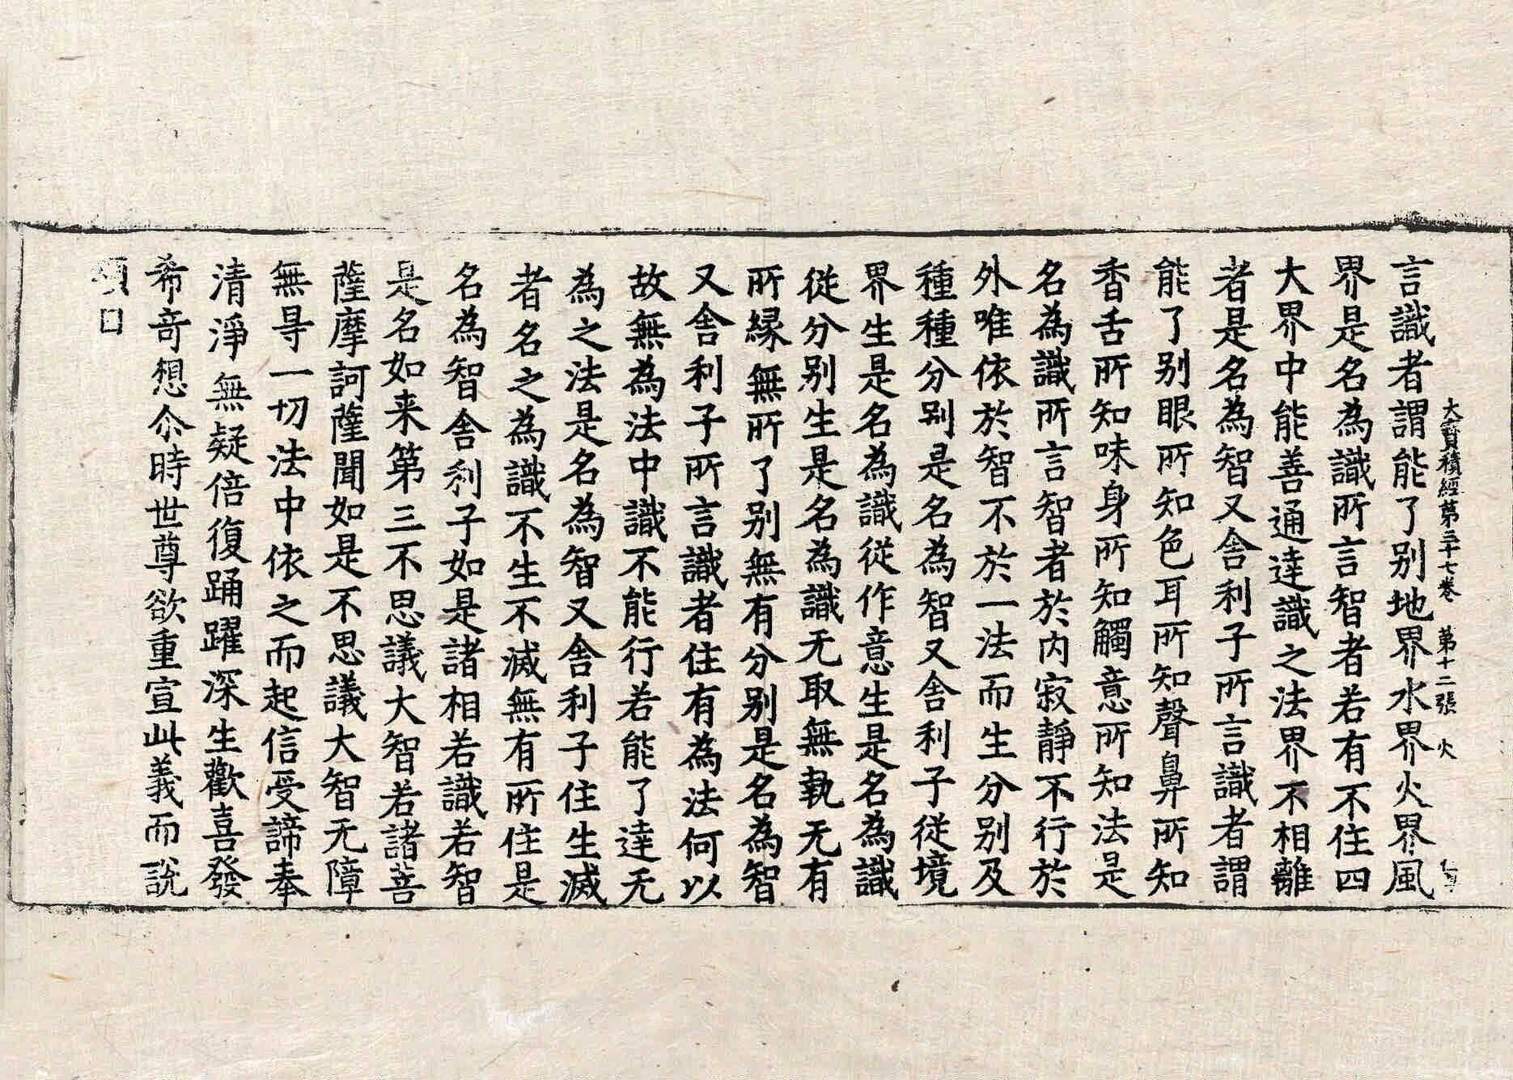 大寶積經第三十七卷 第十二張 火
言識者謂能了别地界水界火界風
界是名為識所言智者若有不住四
大界中能善通達識之法界不相離
者是名為智又舍利子所言識者謂
能了别眼所知色耳所知聲鼻所知
香舌所知味身所知觸意所知法是
名為識所言智者於内寂靜不行於
外唯依於智不於一法而生分别及
種種分别是名為智又舍利子從境
界生是名為識從作意生是名為識
從分别生是名為識无取無執无有
所縁無所了别無有分别是名為智
又舍利子所言識者住有為法何以
故無為法中識不能行若能了達无
為之法是名為智又舍利子住生滅
者名之為識不生不滅無有所住是
名為智舍利子如是諸相若識若智
是名如来第三不思議大智若諸菩
薩摩訶薩聞如是不思議大智无障
無㝵一切法中依之而起信受諦奉
清淨無疑倍復踊躍深生歡喜發
希竒想尒時世尊欲重宣此義而說
頌曰